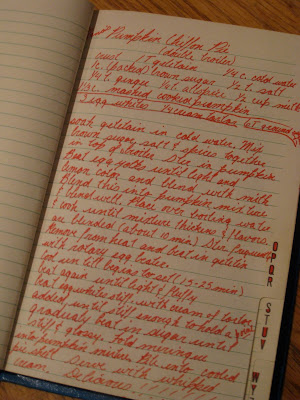 Pumpkin Chiffon Pie
(double boiler)
1 gelatein 1/4 c. cold water
(packed) brown sugar 1/2 t. salt
1/4 t. ginger 1/4 t. allspice 1/2 cup milk
mashed cooked pumpkin
3 egg whites cream tartar
soak gelatein in cold water. Mix
brown sugar salt & spices together
in top of broiler. Stir in pumpkin
Beat egg yolks until light and
lemon color and blend with milk
Blend this into pumpkin mixture
Place over boiling water
& cook until mixture thickens & flavors
are blended (about 10 min) Stir frequently
Remove from heat and beat in gelatein
with rotary egg beater.
Cool un till begins to set (15-25 min)
beat again until light & fluffy
beat egg whites stiff with cream of tartar
added until stiff enough to hold a peak
gradualy beat in sugar until
stiff & glossy. Fold meringue
into pumpkin mixture. Put into cooled
pie shell. Serve with whipped
cream.
Delicious!!!
OPQR
STUV
W